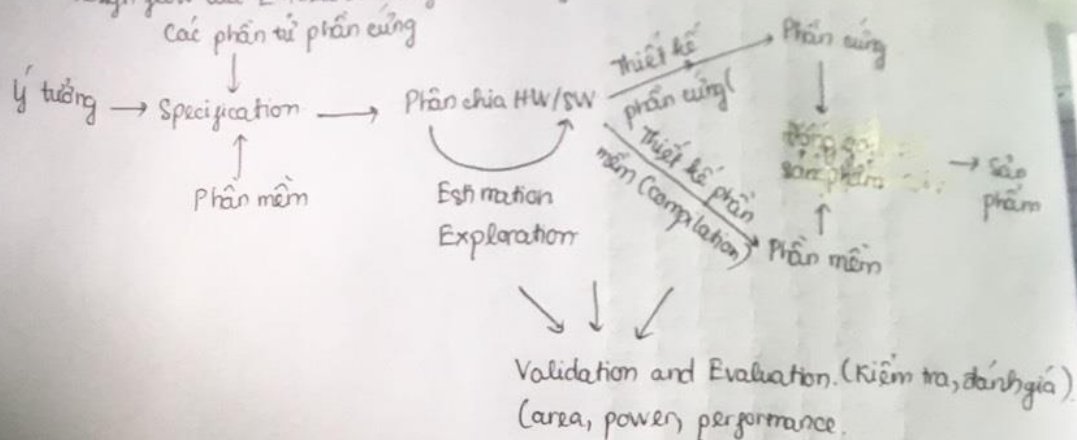 Các phần tử phần cứng
Ý tưởng → Specification → Phân chia HW/SW
Phần mềm
Estimation
Exploration
Thiết kế
phần cứng(
Phần cứng
Thiết kế phần
mềm (compilation)
Phần mềm
Đóng gói
sản phẩm
→ Sản
phẩm
Validation and Evaluation. (Kiểm tra, đánh giá)
(area, power, performance.